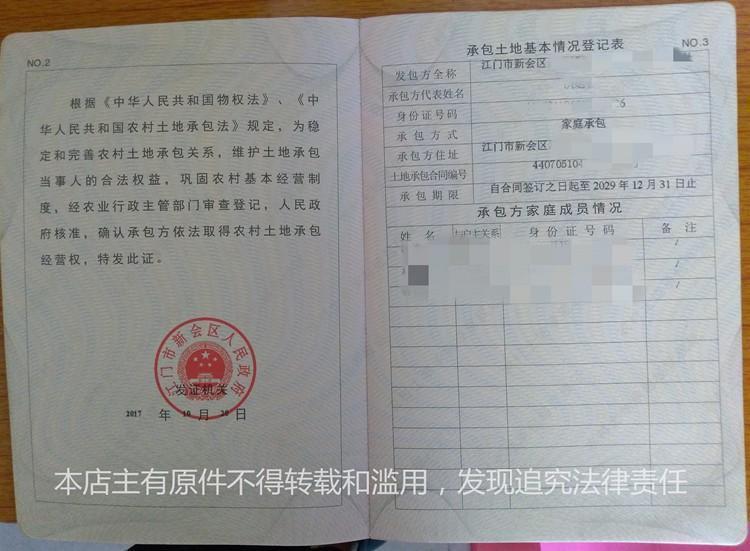 NO.2
根据《中华人民共和国物权法》、《中
华人民共和国农村土地承包法》规定，为稳
定和完善农村土地承包关系，维护土地承包
当事人的合法权益，巩固农村基本经营制
度，经农业行政主管部门审查登记，人民政
府核准，确认承包方依法取得农村土地承包
经营权，特发此证。
江门市新会区人民政府
发证机关
2017 年 10 月 20 日
承包土地基本情况登记表
NO.3
发包方全称 江门市新会区
承包方代表姓名
身份证号码
承包方式 家庭承包
承包方住址 江门市新会区
土地承包合同编号 440705104
承包期限 自合同签订之日起至 2029 年 12 月 31 日止
承包方家庭成员情况
姓名 与户主关系 身份证号码 备注
/
/
/
本店主有原件不得转载和滥用，发现追究法律责任